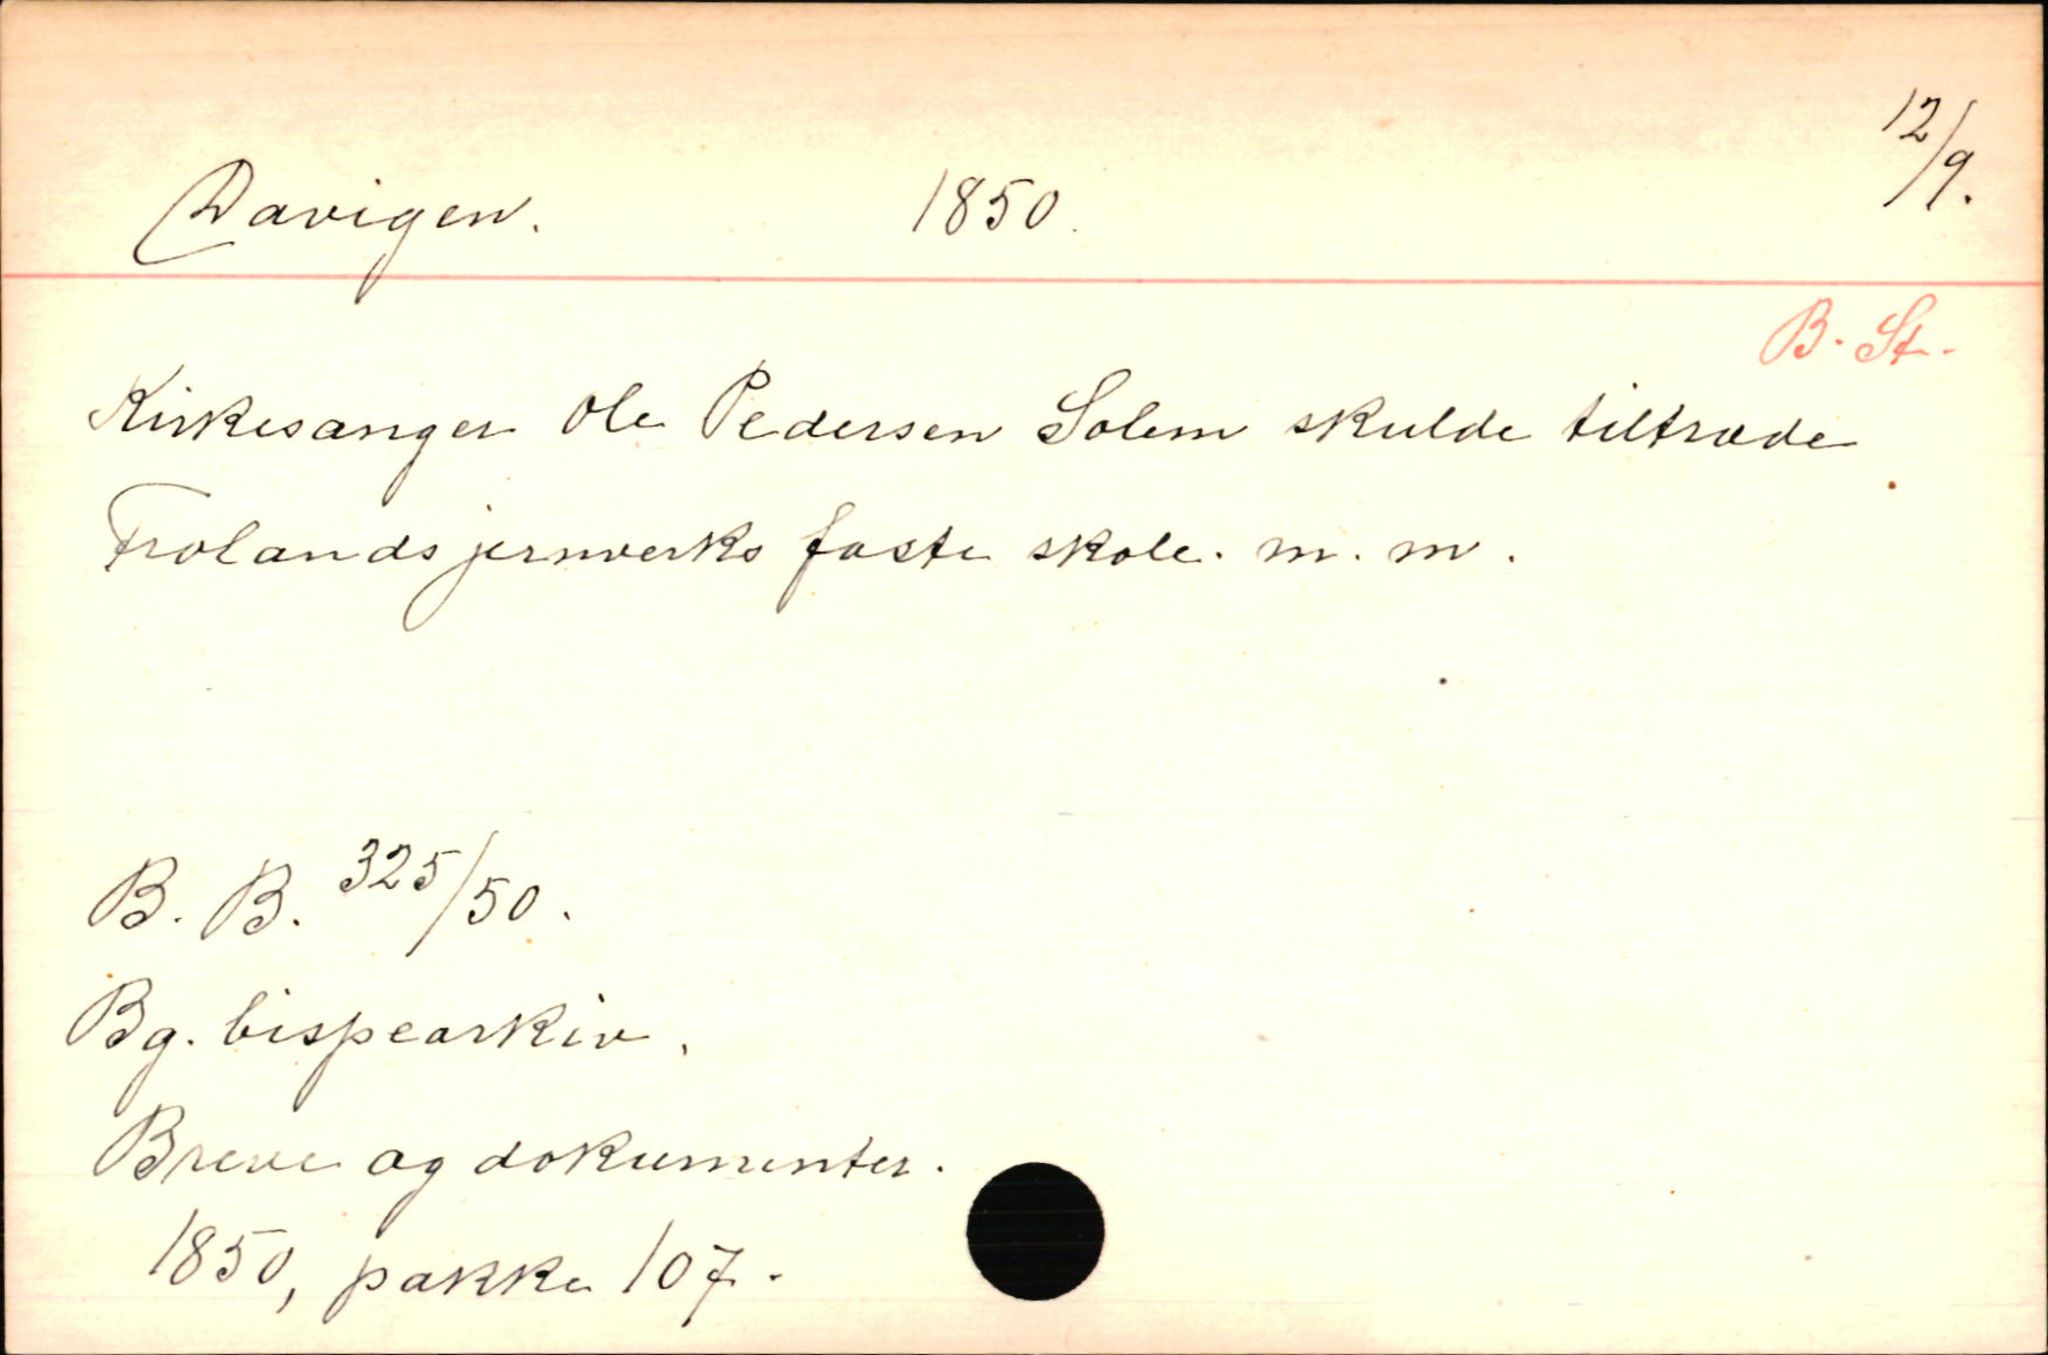 12/9.
Davigen. 1850.
B. St.
Kirkesanger Ole Pedersen Solem skulde tiltræde
Frolands jernverks faste skole. m. m.
B. B. 325/50.
Bg. bispearkiv.
Breve og dokumenter.
1850, pakke 107.